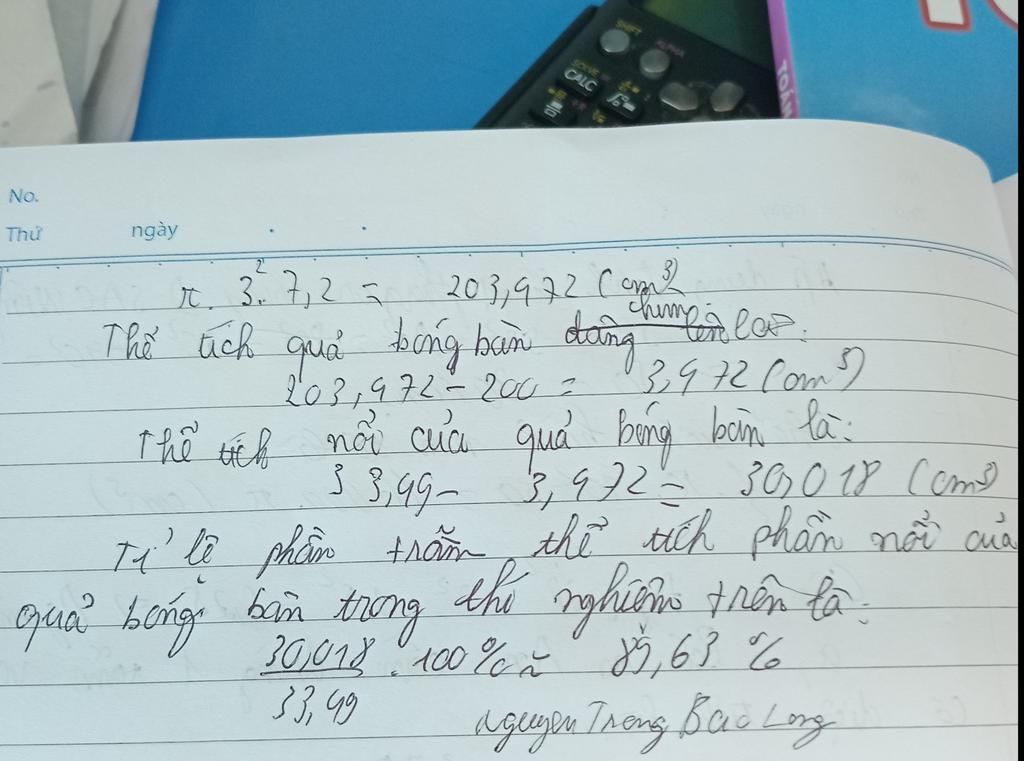 SHIFT
ALPHA
SOLVE =
CALC
TOÁN
No.
Thứ ngày
π. 3². 7,2 = 203,972 (cm³)
chìm
Thể tích quả bóng bàn là:
203,972 - 200 = 3,972 (cm³)
Thể tích nổi của quả bóng bàn là:
33,99 - 3,972 = 30,018 (cm³)
Tỉ lệ phần trăm thể tích phần nổi của
quả bóng bàn trong thí nghiệm trên là:
30,018/33,99 . 100% ≈ 89,63 %
Nguyen Trong Bac Long